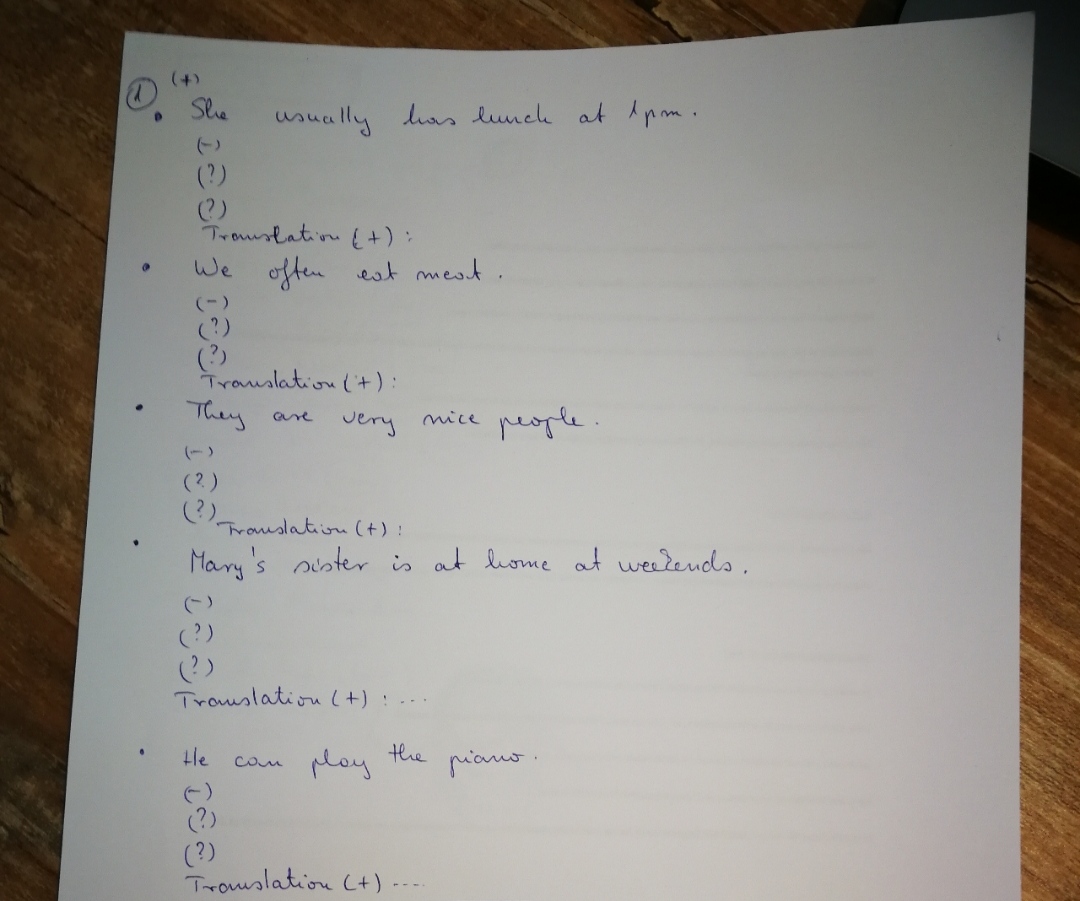 ① (+)
• She usually has lunch at 1pm.
(-)
(?)
(?)
Translation (+) :
• We often eat meat.
(-)
(?)
(?)
Translation (+) :
• They are very nice people.
(-)
(?)
(?)
Translation (+) :
• Mary's sister is at home at weekends.
(-)
(?)
(?)
Translation (+) : ...
• He can play the piano.
(-)
(?)
(?)
Translation (+) ....